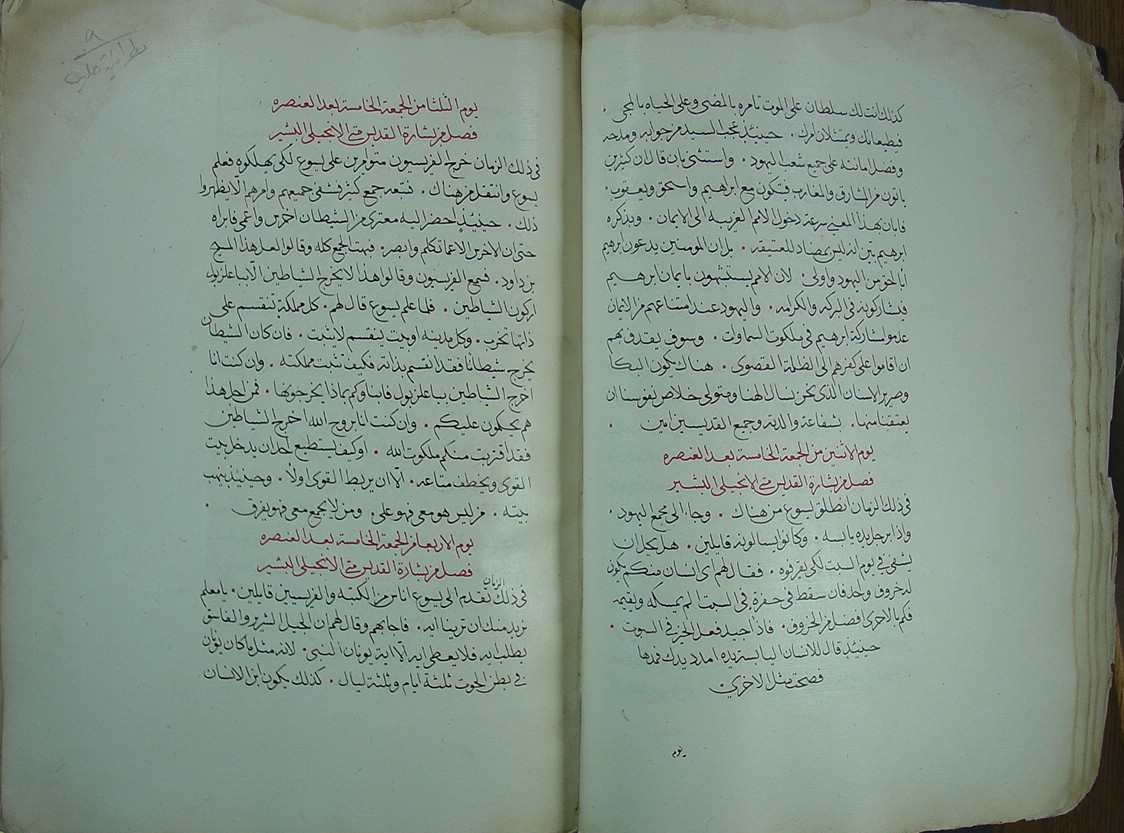 كذلك انت لك سلطان على الموت تامره بالمضى وعلى الحياه بالمجى
فيطيعانك ويمتثلان امرك . حينيذٍ عجب السيد من جوابه ومدحه
وفضل امانته على جميع شعب اليهود . واستثنى بان قال ان كثيرين
ياتون من المشارق والمغارب فتكون مع ابرهيم واسحق ويعقوب .
فابان بهذا المعنى سرعة دخول الامم الغريبه الى الايمان . وبذكره
ابرهيم بيّن انه ليس بمضاد للعتيقه . بل ان المومنين يدعون ابرهيم
ابًا احق من اليهود واولى . لان الامم يستشبهون بايمان ابرهيم
فيشاركونه في البركه والكرامه . واليهود عند امتناعهم من الايمان
عدمو المشاركة ابرهيم في ملكوت السماوات . وسوف يقذف بهم
ان اقاموا على كفرهم الى الظلمة القصوى . هناك يكون البكا
وصرير الاسنان الذى نحن نسال الهنا ومتولى خلاص نفوسنا ان
يعتقنا منها . بشفاعة والدته وجميع القديسين امين .
يوم الاثنين من الجمعة الخامسة بعد العنصره
فصل من بشارة القديس متى الانجيلى البشير
في ذلك الزمان انطلق يسوع من هناك . وجا الى مجمع اليهود .
واذا برجل يده يابسه . وكانوا يسالونه قايلين . هل يحل ان
يشفى في يوم السبت لكى يقرفوه . فقال لهم اى انسان منكم يكون
له خروف واحد فان سقط في حفرة في السبت الم يمسكه ويقيمه
فكم بالاحرى افضل من الخروف . فاذًا جيد فعل الخير في السبوت .
حينيذٍ قال للانسان اليابسة يده امدد يدك فمدها
فصحت مثل الاخرى .
يوم
٩
مطرانية حلب
يوم الثلثا من الجمعة الخامسة بعد العنصره
فصل من بشارة القديس متى الانجيلى البشير
في ذلك الزمان خرج الفريسيون متوامرين على يسوع لكى يهلكوه فعلم
يسوع وانتقل من هناك . فتبعه جمع كثير فشفى جميعهم وامرهم الّا يظهروا
ذلك . حينيذٍ احضر اليه معترى من الشيطان اخرس واعمى فابراه
حتى ان الاخرس الاعما تكلم وابصر . فبهت الجمع كله وقالوا لعل هذا المسيح
بن داود . فسمع الفريسيون وقالوا هذا لا يخرج الشياطين الا بباعلزبول
اركون الشياطين . فلما علم يسوع قال لهم . كل مملكة تنقسم على
ذاتها تخرب . وكل مدينه او بيت ينقسم لا يثبت . فان كان الشيطان
يخرج شيطانًا فقد انقسم بذاته فكيف تثبت مملكته . وان كنت انا
اخرج الشياطين بباعلزبول فابناوكم بماذا يخرجونها . فمن اجل هذا
هم يحكمون عليكم . وان كنت انا بروح الله اخرج الشياطين
فقد اقتربت منكم ملكوت الله . او كيف يستطيع احد ان يدخل بيت
القوى ويخطف متاعه . الّا ان يربط القوى اولًا . وحينيذٍ ينهب
بيته . من ليس هو معى فهو على . ومن لا يجمع معى فهو يفرق .
يوم الاربعا من الجمعة الخامسة بعد العنصره
فصل من بشارة القديس متى الانجيلى البشير
في ذلك الزمان تقدم الى يسوع اناس من الكتبه والفريسيين قايلين . يا معلم
نريد منك ان ترينا ايه . فاجابهم وقال لهم ان الجيل الشرير والفاسق
يطلب ايه فلا يعطى ايه الّا اية يونان النبى . لانه مثل ما كان يونان
في بطن الحوت ثلثة ايام وثلثة ليال . كذلك يكون ابن الانسان